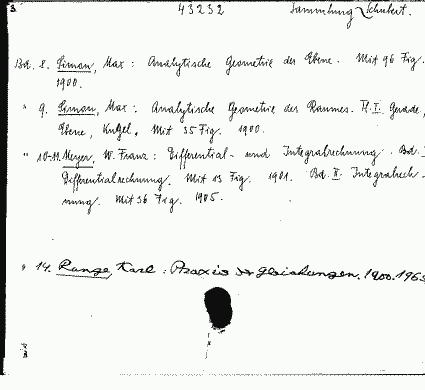 3.
43232 Sammlung Schubert.
Bd. 8. Simon, Max: Analytische Geometrie der Ebene. Mit 96 Fig.
1900.
" 9. Simon, Max: Analytische Geometrie des Raumes. I. Gerade,
Ebene, Kugel. Mit 35 Fig. 1900.
" 10-11. Meyer, W. Franz: Differential- und Integralrechnung. Bd. I
Differentialrechnung. Mit 13 Fig. 1901. Bd. II. Integralrech-
nung. Mit 36 Fig. 1905.
" 14. Runge, Karl: Praxis der Gleichungen. 1900.